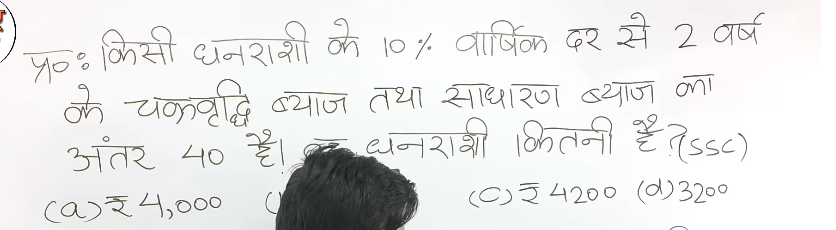 प्र०: किसी धनराशी के 10% वार्षिक दर से 2 वर्ष
के चक्रवृद्धि ब्याज तथा साधारण ब्याज का
अंतर 40 है। धनराशी कितनी है? (SSC)
(a) ₹ 4,000 ( (c) ₹ 4200 (d) 3200